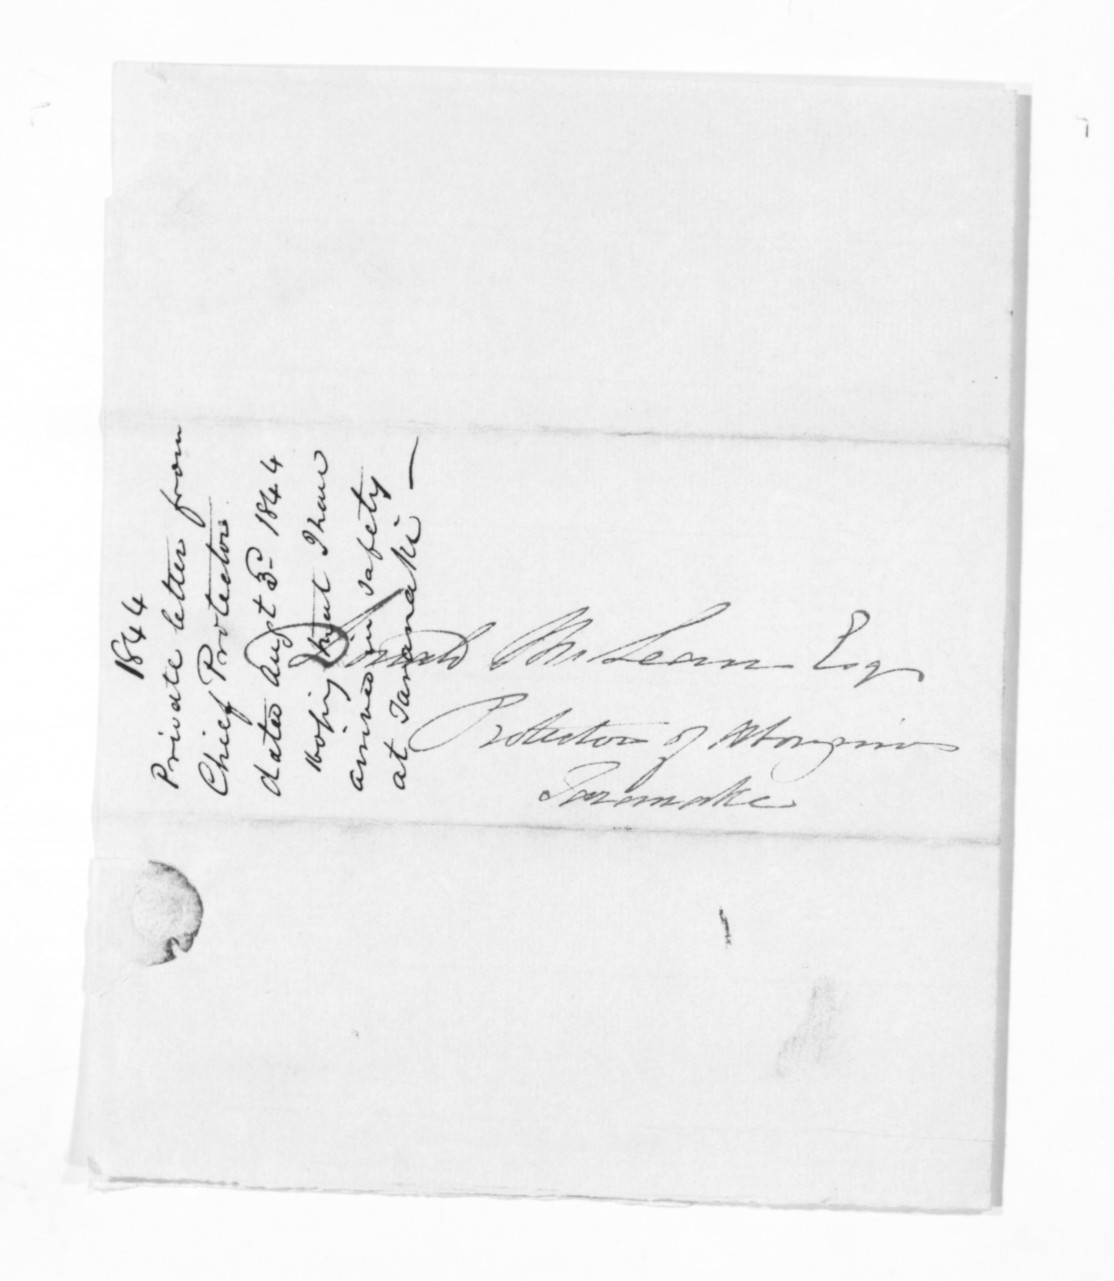 1844
Private letter from
Chief Protector
dated Augst 5th 1844
hoping that I have
arrived in safety
at Taranaki —
Donald McLean Esq
Protector of Aborigines
Taranake